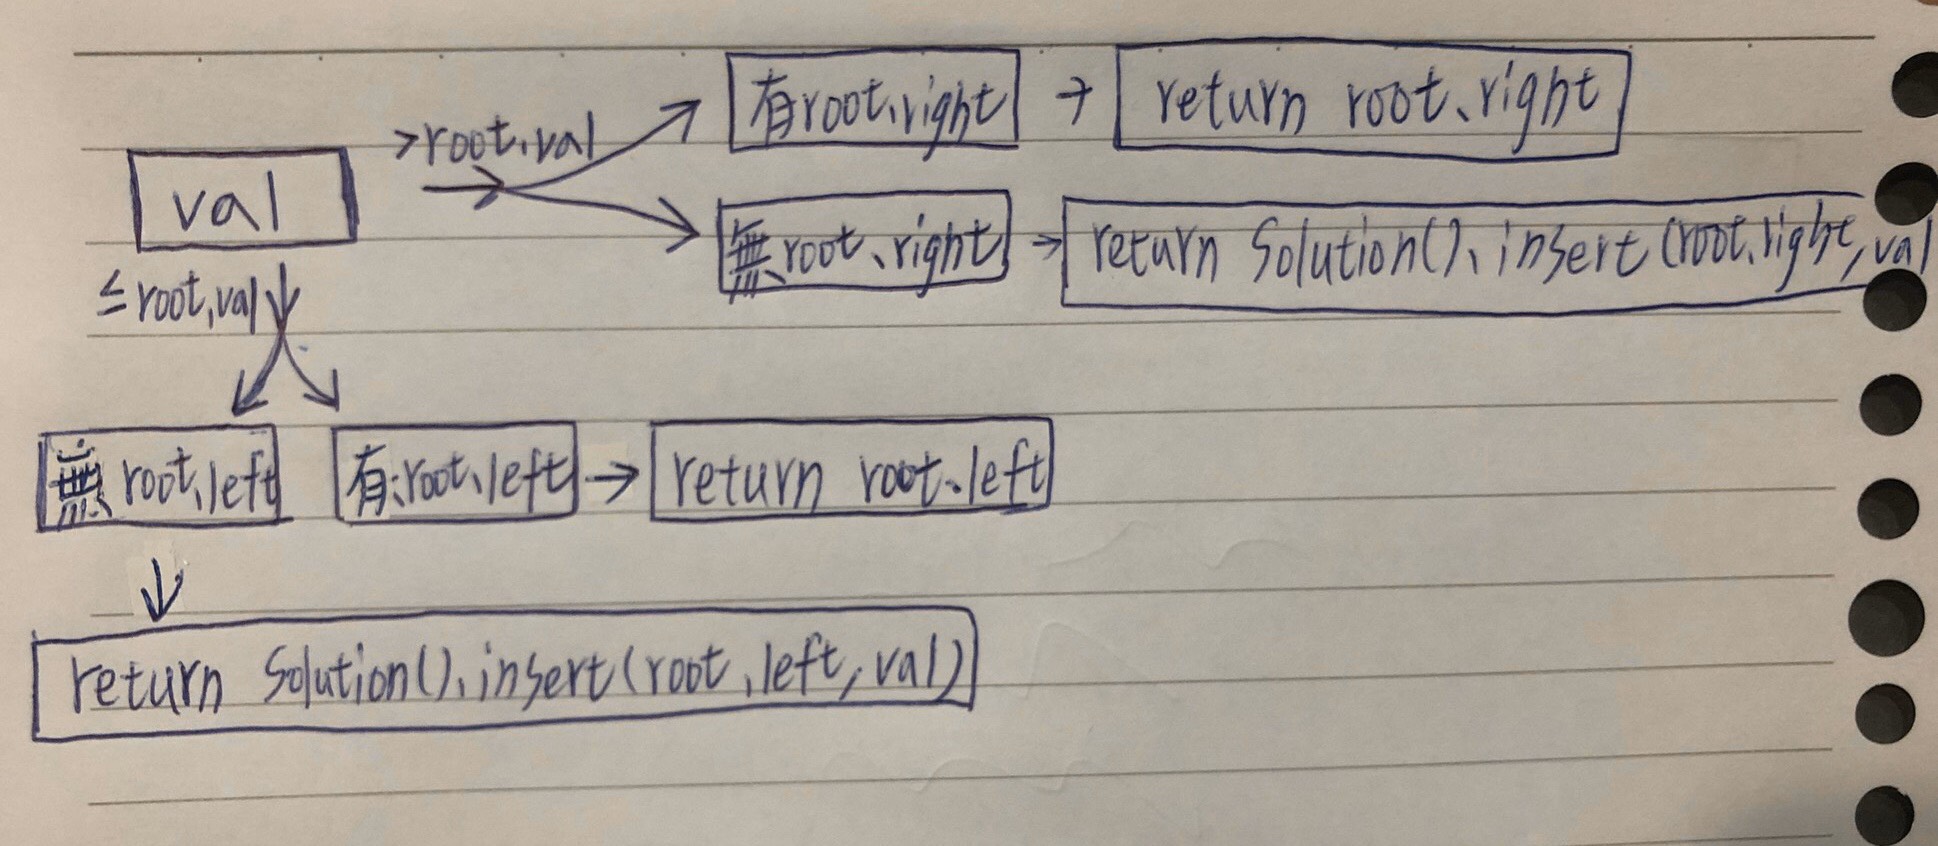 >root.val
有root.right → return root.right
val
無root.right → return Solution().insert(root.right, val
≤root.val
無root.left 有root.left → return root.left
return Solution().insert(root.left, val)